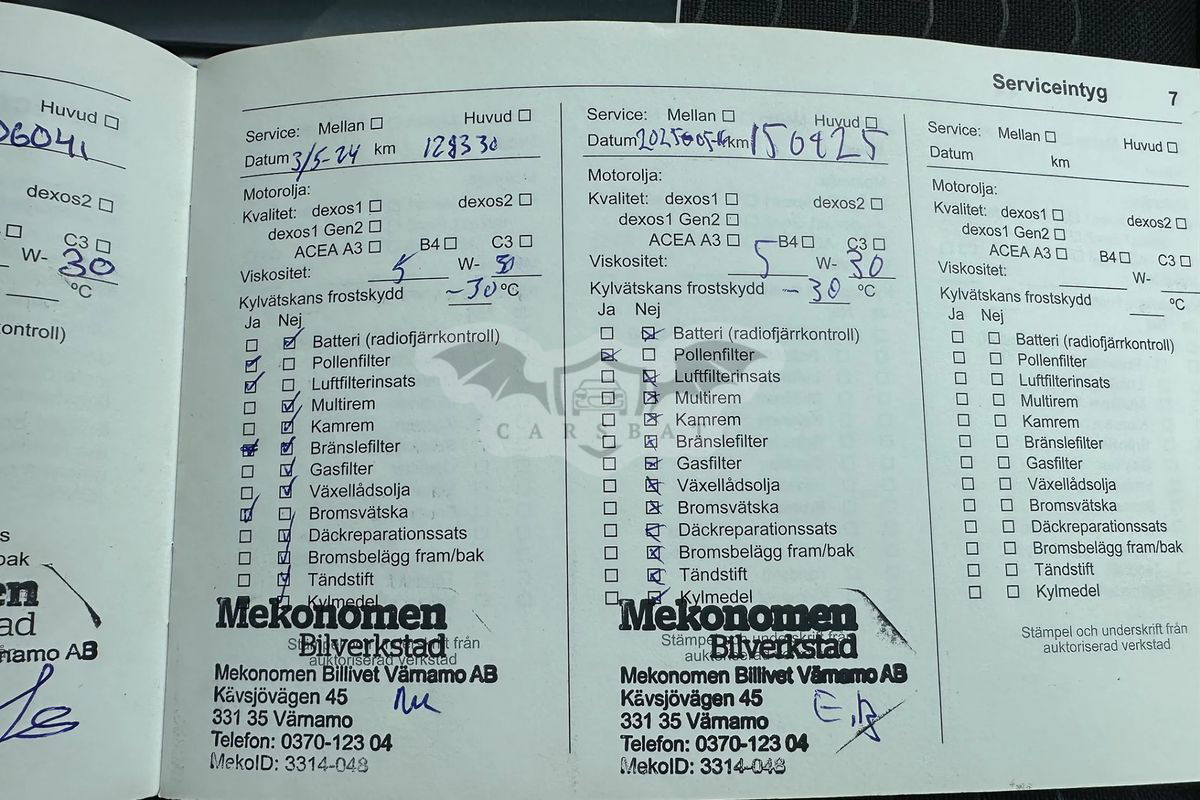 Serviceintyg 7
Huvud
dexos2
C3
W- 30
°C
ontroll)
s
bak
en
ad
rnamo AB
Service: Mellan Huvud
Datum 3/5-24 km 128330
Motorolja:
Kvalitet: dexos1 dexos2
dexos1 Gen2
ACEA A3 B4 C3
Viskositet: 5 W- 30
Kylvätskans frostskydd -30 °C
Ja Nej
Batteri (radiofjärrkontroll)
Pollenfilter
Luftfilterinsats
Multirem
Kamrem
Bränslefilter
Gasfilter
Växellådsolja
Bromsvätska
Däckreparationssats
Bromsbelägg fram/bak
Tändstift
Kylmedel
Mekonomen
Bilverkstad
Stämpel och underskrift från
auktoriserad verkstad
Mekonomen Billivet Värnamo AB
Kävsjövägen 45
331 35 Värnamo
Telefon: 0370-123 04
MekoID: 3314-048
Service: Mellan Huvud
Datum km
Motorolja:
Kvalitet: dexos1 dexos2
dexos1 Gen2
ACEA A3 B4 C3
Viskositet: 5 W- 30
Kylvätskans frostskydd -30 °C
Ja Nej
Batteri (radiofjärrkontroll)
Pollenfilter
Luftfilterinsats
Multirem
Kamrem
Bränslefilter
Gasfilter
Växellådsolja
Bromsvätska
Däckreparationssats
Bromsbelägg fram/bak
Tändstift
Kylmedel
Mekonomen
Bilverkstad
Stämpel och underskrift från
auktoriserad verkstad
Mekonomen Billivet Värnamo AB
Kävsjövägen 45
331 35 Värnamo
Telefon: 0370-123 04
MekoID: 3314-048
Service: Mellan Huvud
Datum km
Motorolja:
Kvalitet: dexos1 dexos2
dexos1 Gen2
ACEA A3 B4 C3
Viskositet: W-
Kylvätskans frostskydd °C
Ja Nej
Batteri (radiofjärrkontroll)
Pollenfilter
Luftfilterinsats
Multirem
Kamrem
Bränslefilter
Gasfilter
Växellådsolja
Bromsvätska
Däckreparationssats
Bromsbelägg fram/bak
Tändstift
Kylmedel
Stämpel och underskrift från
auktoriserad verkstad
CARSBAT